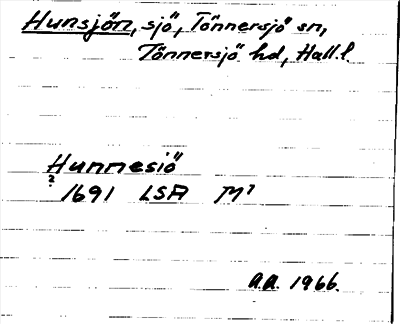 Hunsjön, sjö, Tönnersjö sn,
Tönnersjö hd, Hall. l.
Hunnesiö
? 1691 LSA M1
A.A. 1966.